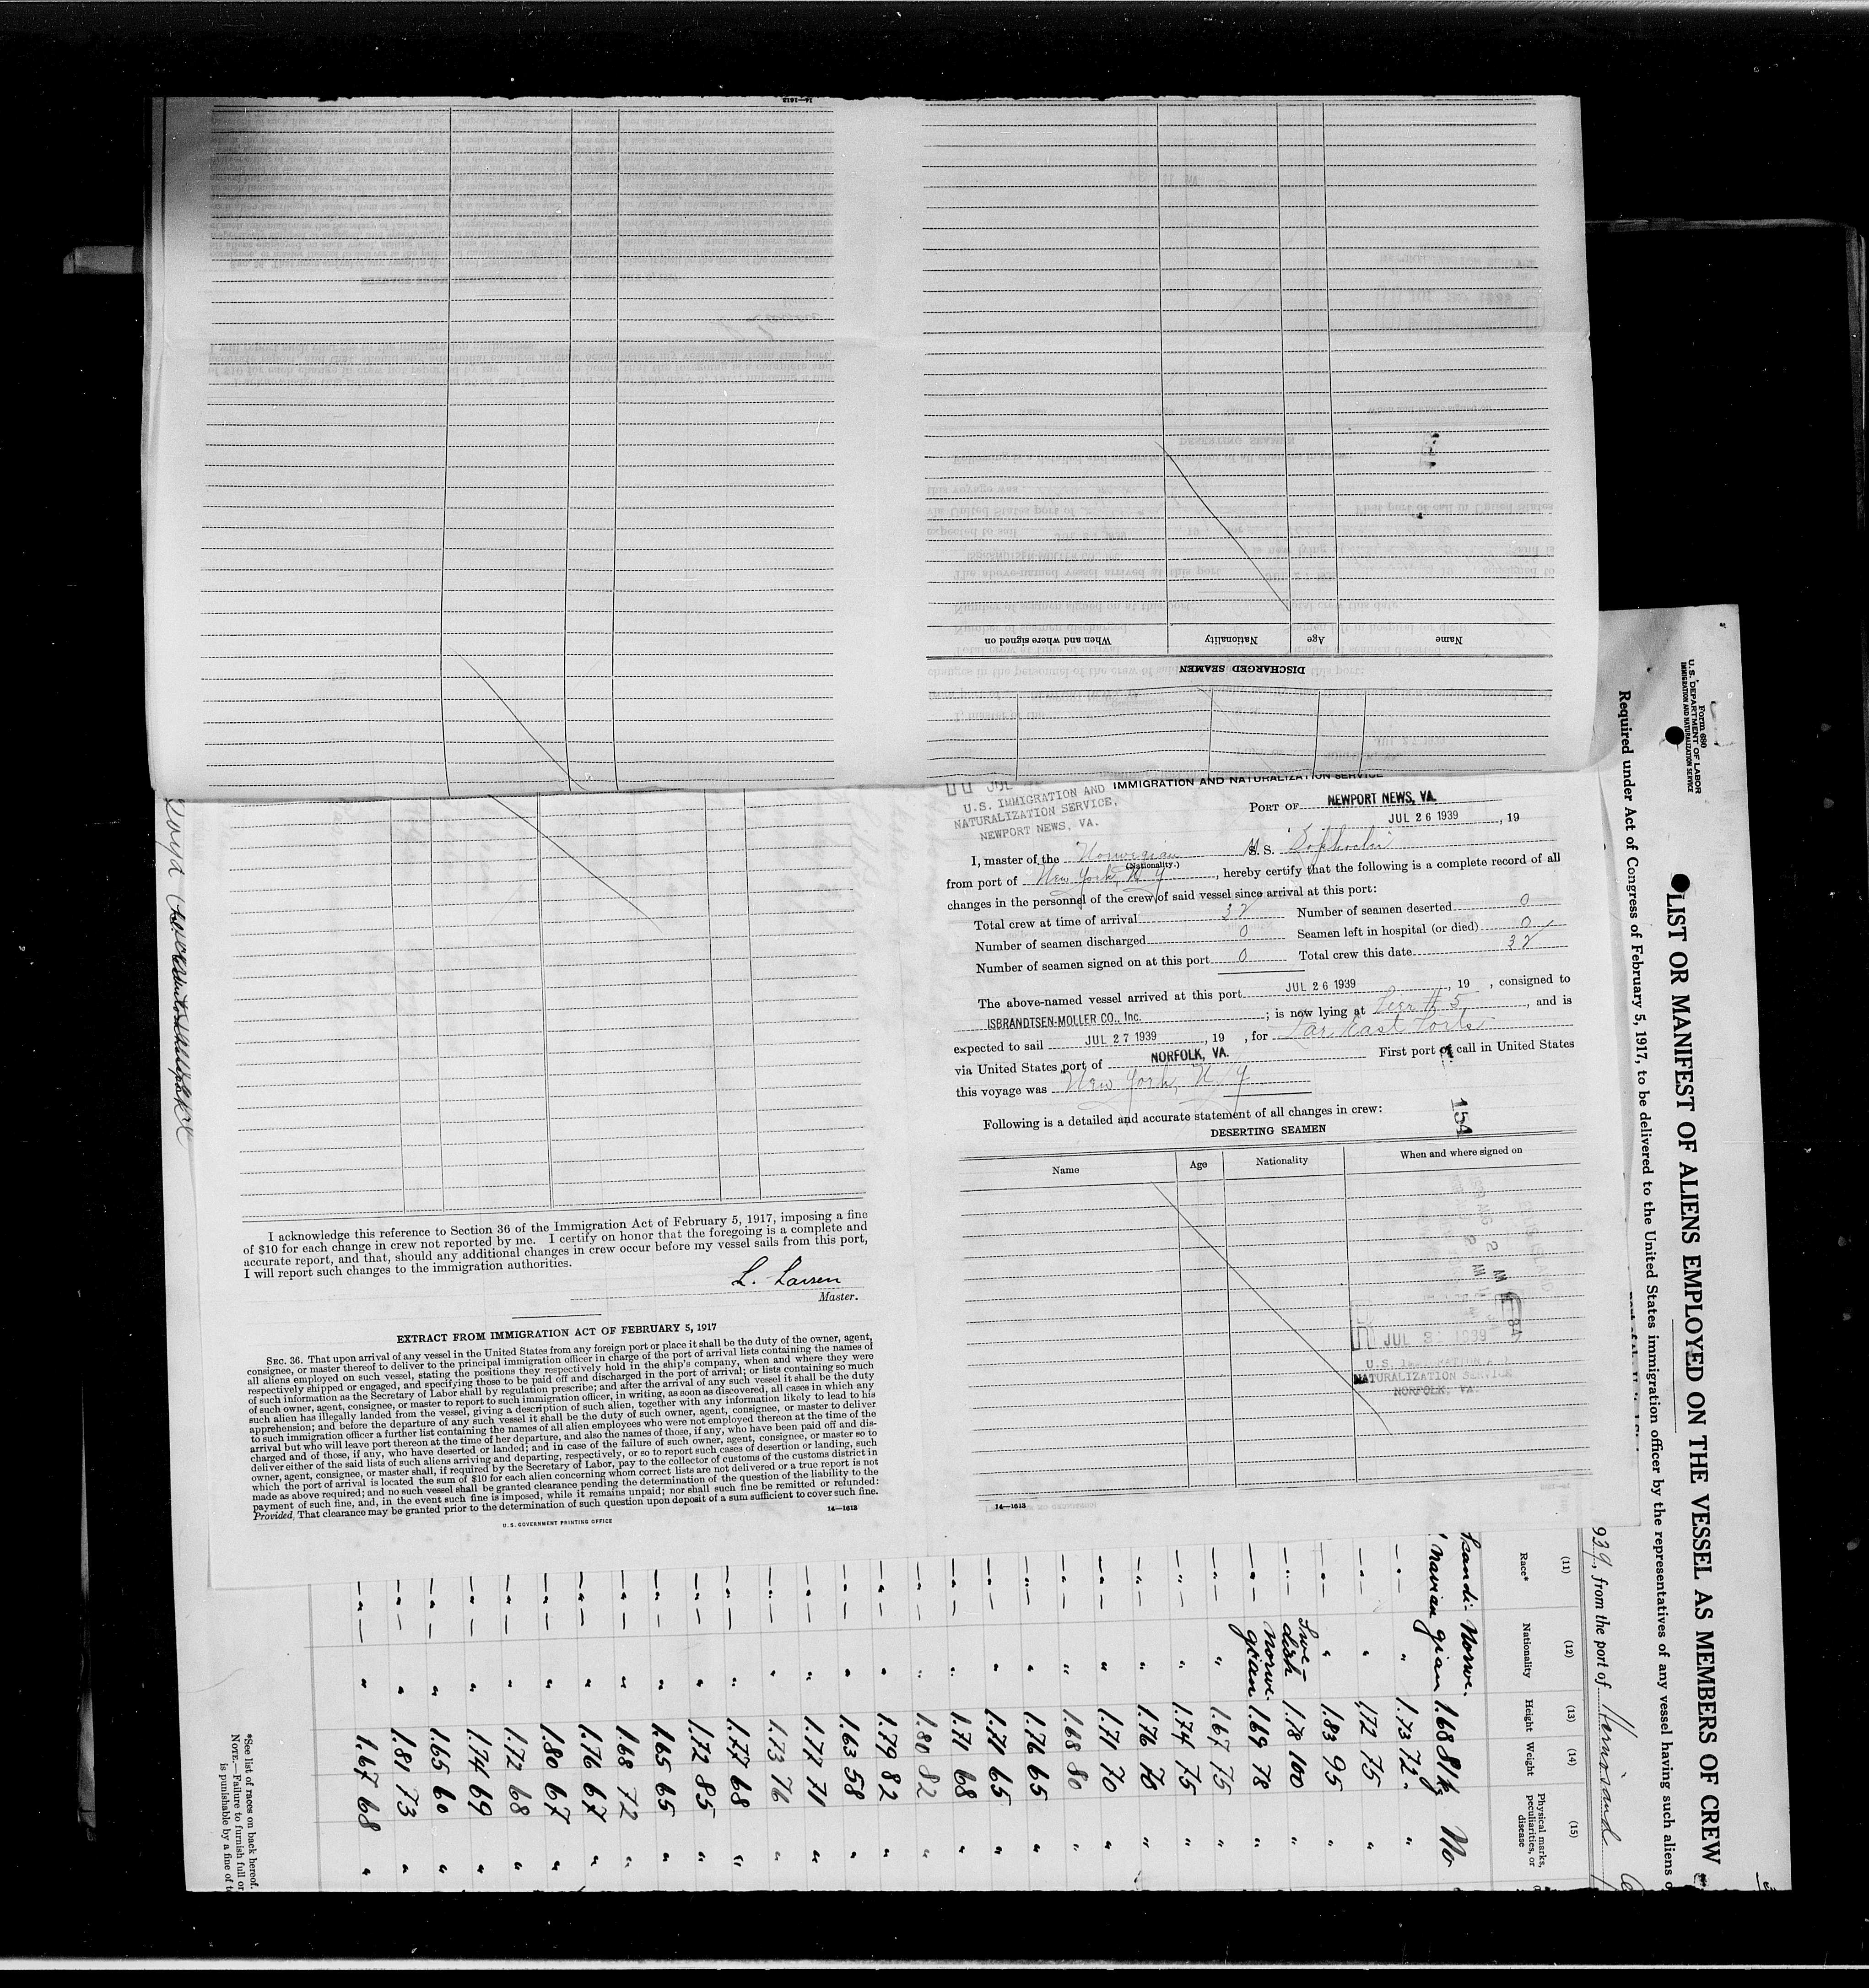 14—1613
DISCHARGED SEAMEN
Name
Age
Nationality
When and where signed on
U.S. IMMIGRATION AND
NATURALIZATION SERVICE,
NEWPORT NEWS, VA.
IMMIGRATION AND NATURALIZATION SERVICE
PORT OF NEWPORT NEWS, VA.
JUL 26 1939, 19
I, master of the Norwegian S. S.
(Nationality.)
from port of New York, N Y, hereby certify that the following is a complete record of all
changes in the personnel of the crew of said vessel since arrival at this port:
Total crew at time of arrival 32 Number of seamen deserted 0
Number of seamen discharged 0 Seamen left in hospital (or died) 0
Number of seamen signed on at this port 0 Total crew this date 32
The above-named vessel arrived at this port JUL 26 1939, 19 , consigned to
ISBRANDTSEN-MOLLER CO., Inc. ; is now lying at Pier # 5, and is
expected to sail JUL 27 1939, 19 , for Far East Ports
via United States port of NORFOLK, VA. First port of call in United States
this voyage was New York, N. Y.
154
Following is a detailed and accurate statement of all changes in crew:
DESERTING SEAMEN
Name Age Nationality When and where signed on
JUL 31 1939
U.S. IMMIGRATION
NATURALIZATION SERVICE
NORFOLK, VA.
14—1613
I acknowledge this reference to Section 36 of the Immigration Act of February 5, 1917, imposing a fine
of $10 for each change in crew not reported by me. I certify on honor that the foregoing is a complete and
accurate report, and that, should any additional changes in crew occur before my vessel sails from this port,
I will report such changes to the immigration authorities.
L. Larsen
Master.
EXTRACT FROM IMMIGRATION ACT OF FEBRUARY 5, 1917
SEC. 36. That upon arrival of any vessel in the United States from any foreign port or place it shall be the duty of the owner, agent,
consignee, or master thereof to deliver to the principal immigration officer in charge of the port of arrival lists containing the names of
all aliens employed on such vessel, stating the positions they respectively hold in the ship's company, when and where they were
respectively shipped or engaged, and specifying those to be paid off and discharged in the port of arrival; or lists containing so much
of such information as the Secretary of Labor shall by regulation prescribe; and after the arrival of any such vessel it shall be the duty
of such owner, agent, consignee, or master to report to such immigration officer, in writing, as soon as discovered, all cases in which any
such alien has illegally landed from the vessel, giving a description of such alien, together with any information likely to lead to his
apprehension; and before the departure of any such vessel it shall be the duty of such owner, agent, consignee, or master to deliver
to such immigration officer a further list containing the names of all alien employees who were not employed thereon at the time of the
arrival but who will leave port thereon at the time of her departure, and also the names of those, if any, who have been paid off and dis-
charged and of those, if any, who have deserted or landed; and in case of the failure of such owner, agent, consignee, or master so to
deliver either of the said lists of such aliens arriving and departing, respectively, or so to report such cases of desertion or landing, such
owner, agent, consignee, or master shall, if required by the Secretary of Labor, pay to the collector of customs of the customs district in
which the port of arrival is located the sum of $10 for each alien concerning whom correct lists are not delivered or a true report is not
made as above required; and no such vessel shall be granted clearance pending the determination of the question of the liability to the
payment of such fine, and, in the event such fine is imposed, while it remains unpaid; nor shall such fine be remitted or refunded:
Provided, That clearance may be granted prior to the determination of such question upon deposit of a sum sufficient to cover such fine.
14—1613
U. S. GOVERNMENT PRINTING OFFICE
Form 680
U. S. DEPARTMENT OF LABOR
IMMIGRATION AND NATURALIZATION SERVICE
LIST OR MANIFEST OF ALIENS EMPLOYED ON THE VESSEL AS MEMBERS OF CREW
Required under Act of Congress of February 5, 1917, to be delivered to the United States immigration officer by the representatives of any vessel having such aliens
939, from the port of
(11) (12) (13) (14) (15)
Race* Nationality Height Weight Physical marks, peculiarities, or disease
Scandi- Norwe- 1.68 81 k No
navian gian
— " — " 1.73 72 "
— " — " 1.72 75 "
— " — " 1.83 95 "
— " — Swe- 1.78 100 "
dish
— " — Norwe- 1.69 78 "
gian
— " — " 1.67 75 "
— " — " 1.74 75 "
— " — " 1.76 70 "
— " — " 1.71 70 "
— " — " 1.68 80 "
— " — " 1.76 65 "
— " — " 1.71 65 "
— " — " 1.71 68 "
— " — " 1.80 82 "
— " — " 1.79 82 "
— " — " 1.63 58 "
— " — " 1.77 71 "
— " — " 1.73 76 "
— " — " 1.77 68 "
— " — " 1.72 85 "
— " — " 1.65 65 "
— " — " 1.68 72 "
— " — " 1.76 67 "
— " — " 1.80 67 "
— " — " 1.72 68 "
— " — " 1.74 69 "
— " — " 1.65 60 "
— " — " 1.81 73 "
— " — " 1.67 68 "
*See list of races on back hereof.
NOTE.—Failure to furnish full or
is punishable by a fine of